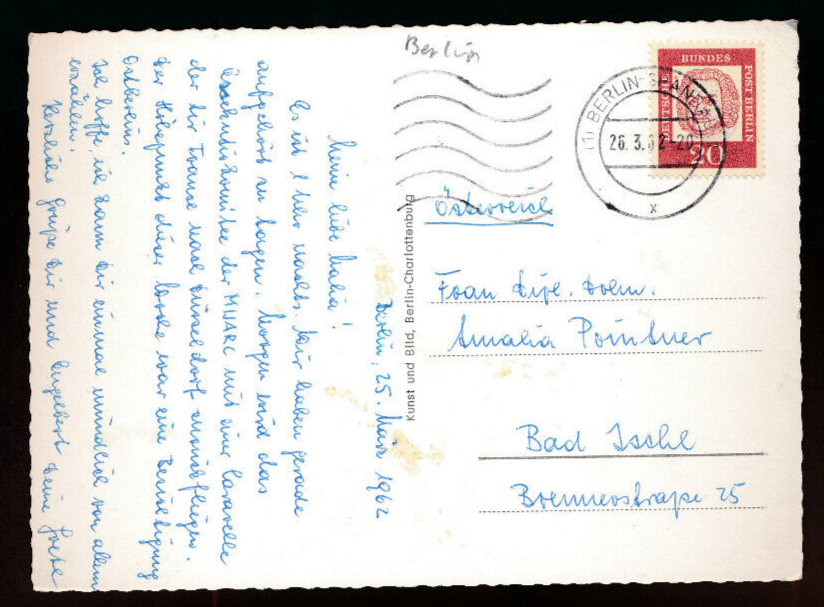 Berlin
BUNDES
POST BERLIN
DEUTSCHE
20
(1) BERLIN-
26.3.62-20
x
Österreich
Frau Dipl. Dolm.
Amalia Pointner
Bad Ischl
Brennerstraße 25
Kunst und Bild, Berlin-Charlottenburg
Berlin, 25. März 1962
Meine liebe Malia!
Es ist 1 Uhr nachts. Wir haben gerade
aufgehört zu tagen. Morgen wird das
der MIJARC mit einer Caravelle
der Air France nach Düsseldorf ausfliegen.
Der Höhepunkt dieser Woche war eine Besichtigung
Ostberlins.
Ich hoffe, ich kann dir einmal mündlich von allem
erzählen.
Herzliche Grüße dir und Engelbert deine